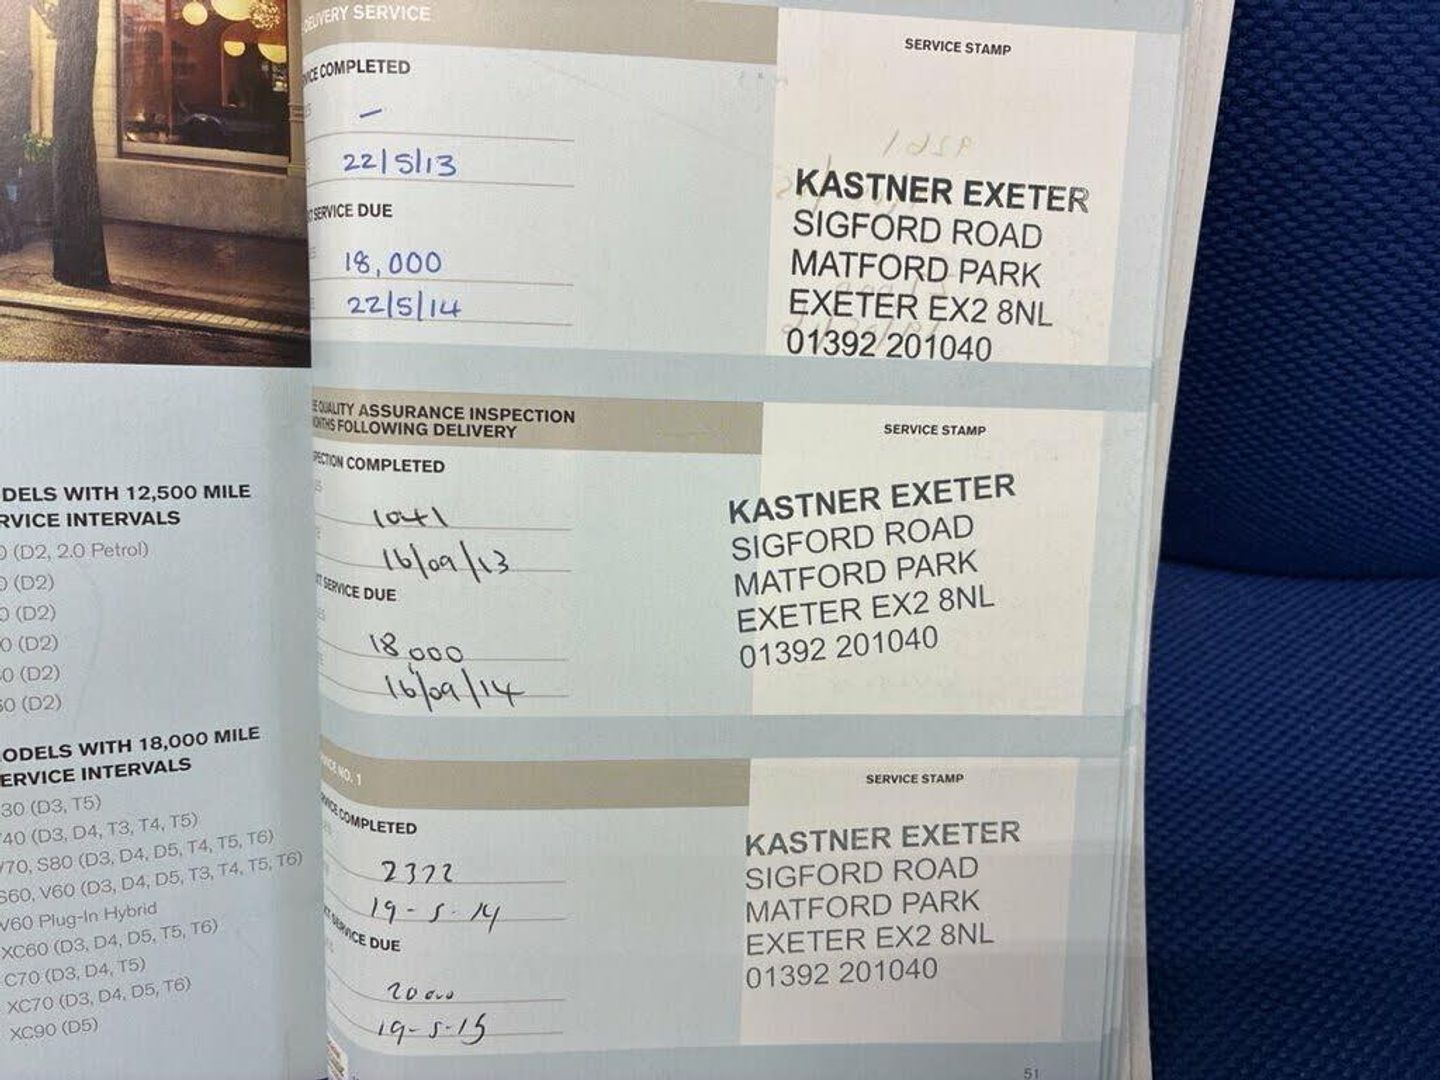 DELIVERY SERVICE
SERVICE STAMP
COMPLETED
–
22/5/13
SERVICE DUE
18,000
22/5/14
KASTNER EXETER
SIGFORD ROAD
MATFORD PARK
EXETER EX2 8NL
01392 201040
QUALITY ASSURANCE INSPECTION
FOLLOWING DELIVERY
SERVICE STAMP
COMPLETED
1041
16/09/13
SERVICE DUE
18,000
16/09/14
KASTNER EXETER
SIGFORD ROAD
MATFORD PARK
EXETER EX2 8NL
01392 201040
NO. 1
SERVICE STAMP
COMPLETED
2322
19-5-14
SERVICE DUE
20000
19-5-15
KASTNER EXETER
SIGFORD ROAD
MATFORD PARK
EXETER EX2 8NL
01392 201040
51
DELS WITH 12,500 MILE
RVICE INTERVALS
0 (D2, 2.0 Petrol)
0 (D2)
0 (D2)
0 (D2)
0 (D2)
60 (D2)
ODELS WITH 18,000 MILE
ERVICE INTERVALS
30 (D3, T5)
40 (D3, D4, T3, T4, T5)
V70, S80 (D3, D4, D5, T4, T5, T6)
S60, V60 (D3, D4, D5, T3, T4, T5, T6)
V60 Plug-In Hybrid
XC60 (D3, D4, D5, T5, T6)
C70 (D3, D4, T5)
XC70 (D3, D4, D5, T6)
XC90 (D5)